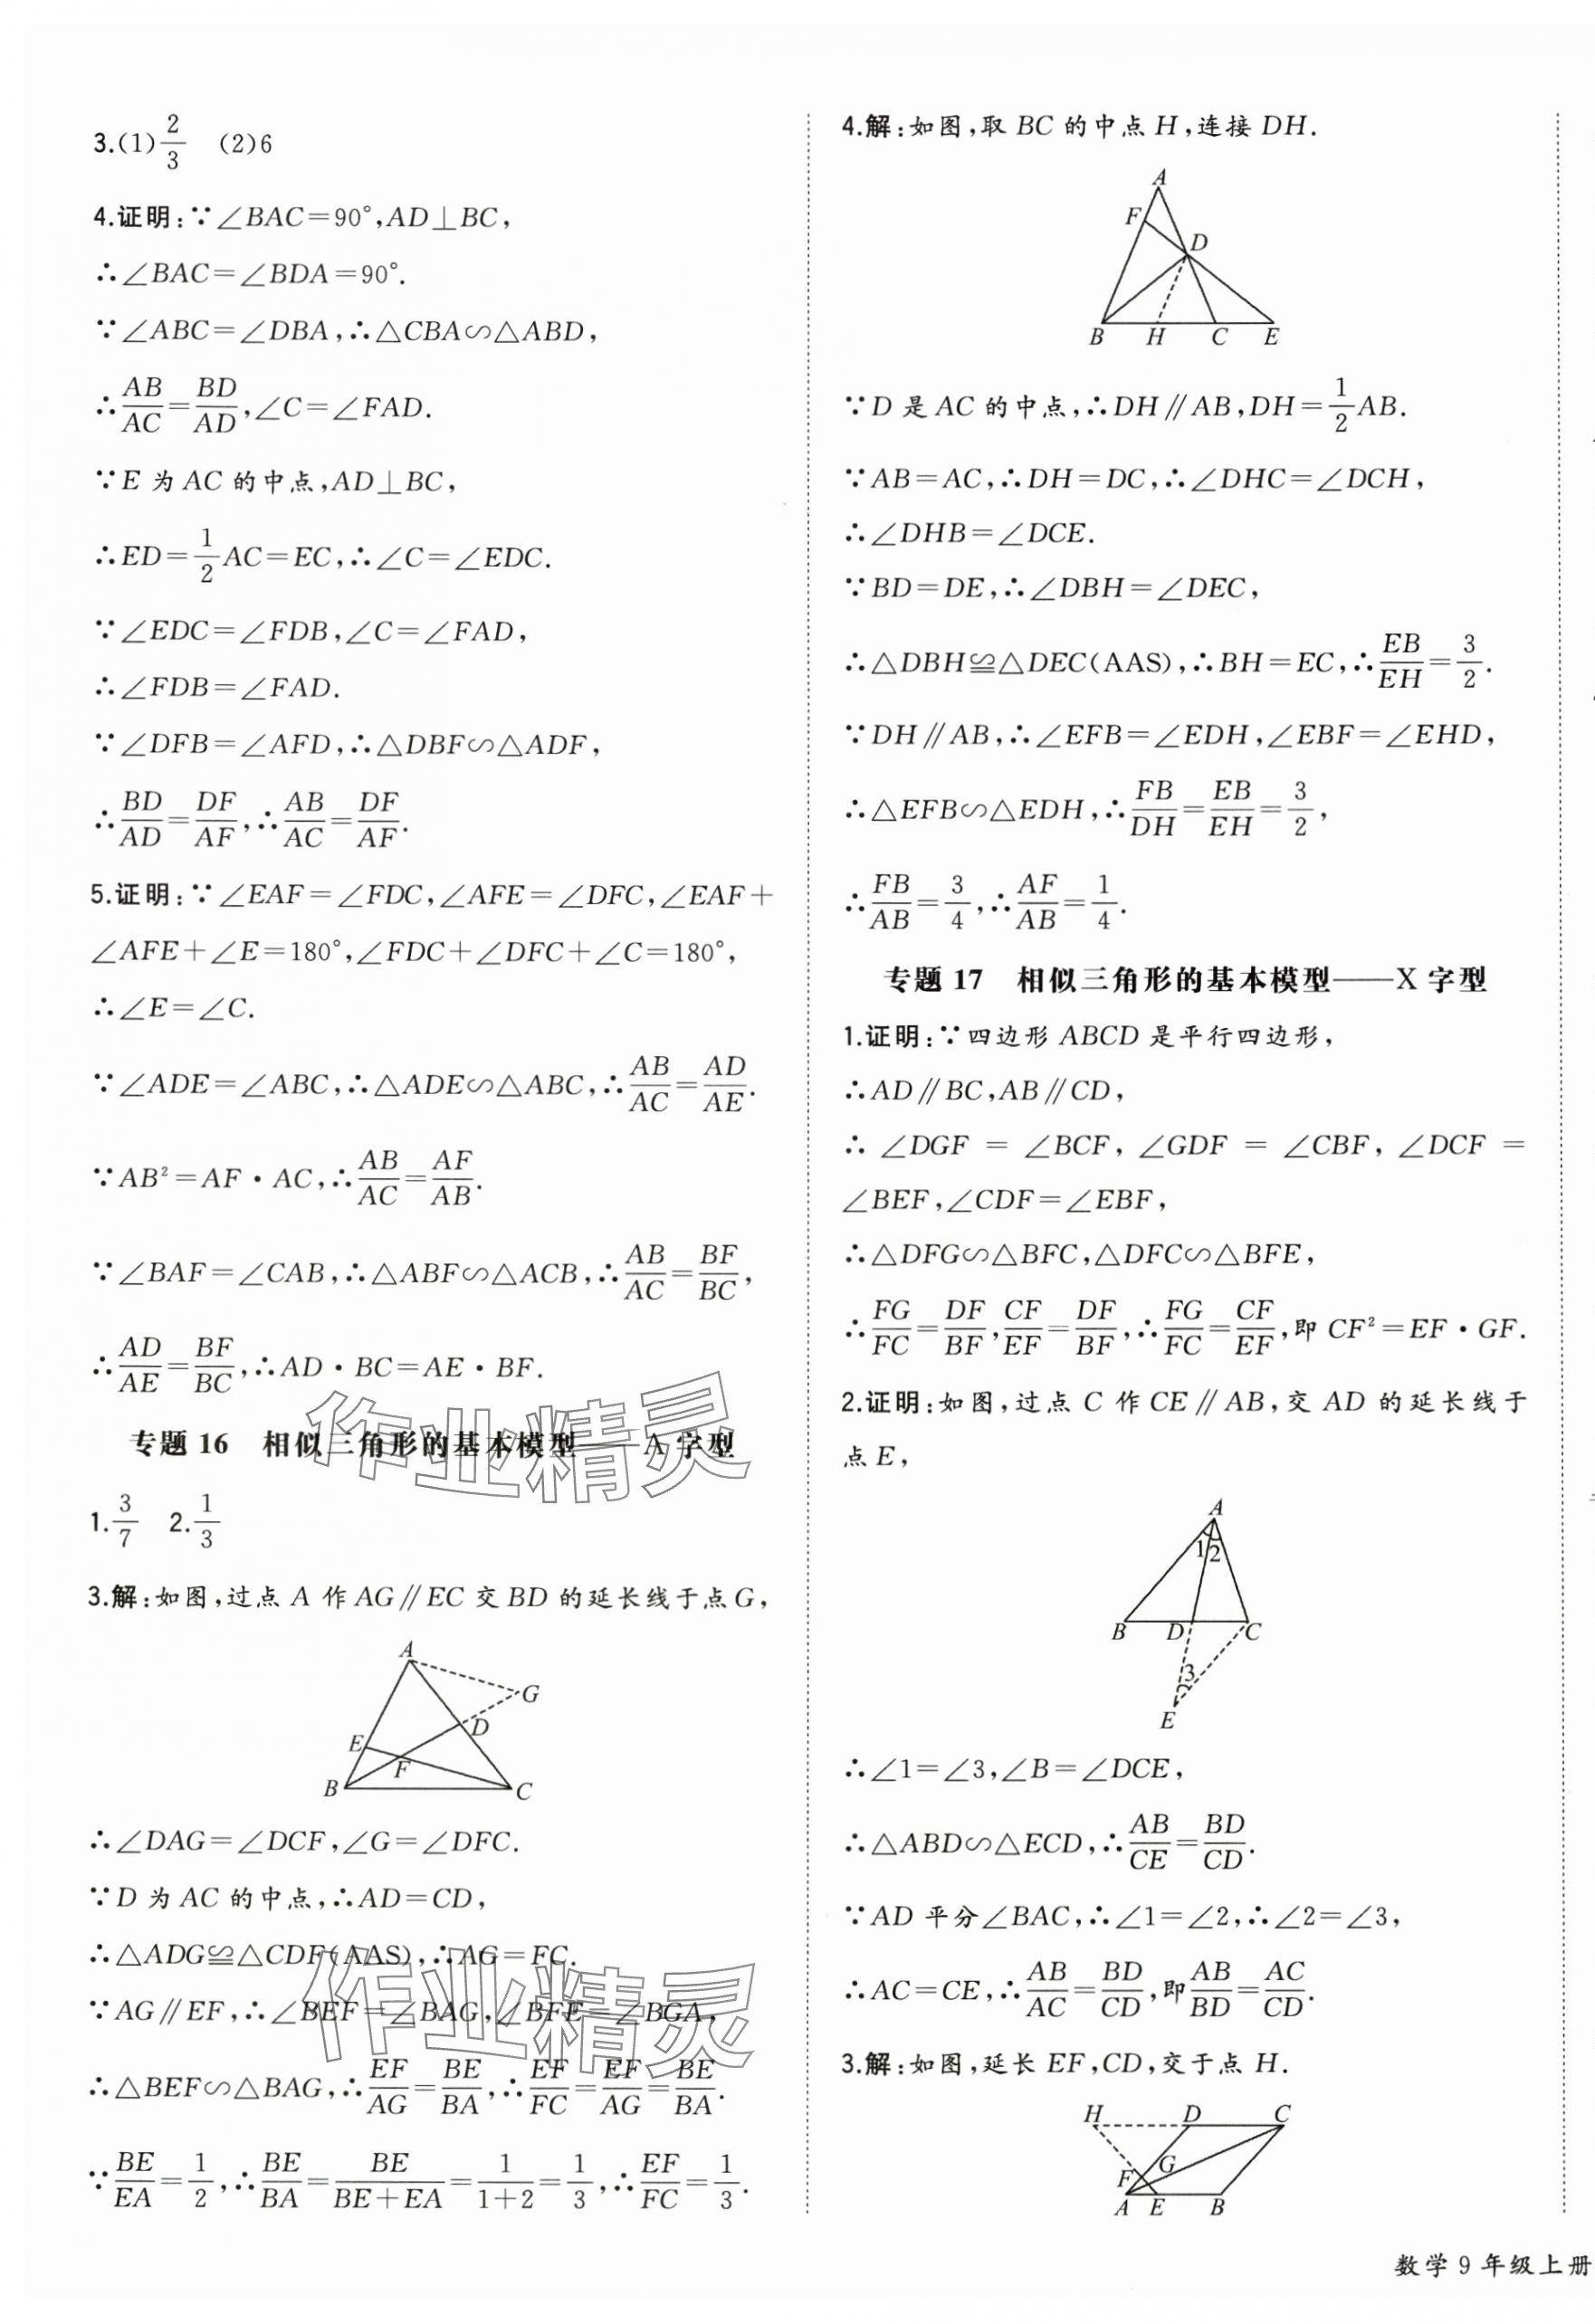 3.(1)2/3 (2)6
4.证明:∵∠BAC=90°,AD⊥BC,
∴∠BAC=∠BDA=90°.
∵∠ABC=∠DBA,∴△CBA∽△ABD,
∴AB/AC=BD/AD,∠C=∠FAD.
∵E 为 AC 的中点,AD⊥BC,
∴ED=1/2AC=EC,∴∠C=∠EDC.
∵∠EDC=∠FDB,∠C=∠FAD,
∴∠FDB=∠FAD.
∵∠DFB=∠AFD,∴△DBF∽△ADF,
∴BD/AD=DF/AF,∴AB/AC=DF/AF.
5.证明:∵∠EAF=∠FDC,∠AFE=∠DFC,∠EAF+
∠AFE+∠E=180°,∠FDC+∠DFC+∠C=180°,
∴∠E=∠C.
∵∠ADE=∠ABC,∴△ADE∽△ABC,∴AB/AC=AD/AE.
∵AB²=AF·AC,∴AB/AC=AF/AB.
∵∠BAF=∠CAB,∴△ABF∽△ACB,∴AB/AC=BF/BC,
∴AD/AE=BF/BC,∴AD·BC=AE·BF.
专题 16 相似三角形的基本模型——A 字型
1.3/7 2.1/3
3.解:如图,过点 A 作 AG∥EC 交 BD 的延长线于点G,
A
G
D
E
F
B
C
∴∠DAG=∠DCF,∠G=∠DFC.
∵D 为 AC 的中点,∴AD=CD,
∴△ADG≌△CDF(AAS),∴AG=FC.
∵AG∥EF,∴∠BEF=∠BAG,∠BFE=∠BGA,
∴△BEF∽△BAG,∴EF/AG=BE/BA,∴EF/FC=EF/AG=BE/BA.
∵BE/EA=1/2,∴BE/BA=BE/(BE+EA)=1/(1+2)=1/3,∴EF/FC=1/3.
作业精灵
作业精灵
4.解:如图,取 BC 的中点 H,连接 DH.
A
F
D
B H C E
∵D 是 AC 的中点,∴DH∥AB,DH=1/2AB.
∵AB=AC,∴DH=DC,∴∠DHC=∠DCH,
∴∠DHB=∠DCE.
∵BD=DE,∴∠DBH=∠DEC,
∴△DBH≌△DEC(AAS),∴BH=EC,∴EB/EH=3/2.
∵DH∥AB,∴∠EFB=∠EDH,∠EBF=∠EHD,
∴△EFB∽△EDH,∴FB/DH=EB/EH=3/2,
∴FB/AB=3/4,∴AF/AB=1/4.
专题 17 相似三角形的基本模型——X 字型
1.证明:∵四边形 ABCD 是平行四边形,
∴AD∥BC,AB∥CD,
∴ ∠DGF = ∠BCF, ∠GDF = ∠CBF, ∠DCF =
∠BEF,∠CDF=∠EBF,
∴△DFG∽△BFC,△DFC∽△BFE,
∴FG/FC=DF/BF,CF/EF=DF/BF,∴FG/FC=CF/EF,即 CF²=EF·GF.
2.证明:如图,过点 C 作 CE∥AB,交 AD 的延长线于
点 E,
A
1 2
B D C
3
E
∴∠1=∠3,∠B=∠DCE,
∴△ABD∽△ECD,∴AB/CE=BD/CD.
∵AD 平分∠BAC,∴∠1=∠2,∴∠2=∠3,
∴AC=CE,∴AB/AC=BD/CD,即AB/BD=AC/CD.
3.解:如图,延长 EF,CD,交于点 H.
H D C
F G
A E B
数学 9 年级上册